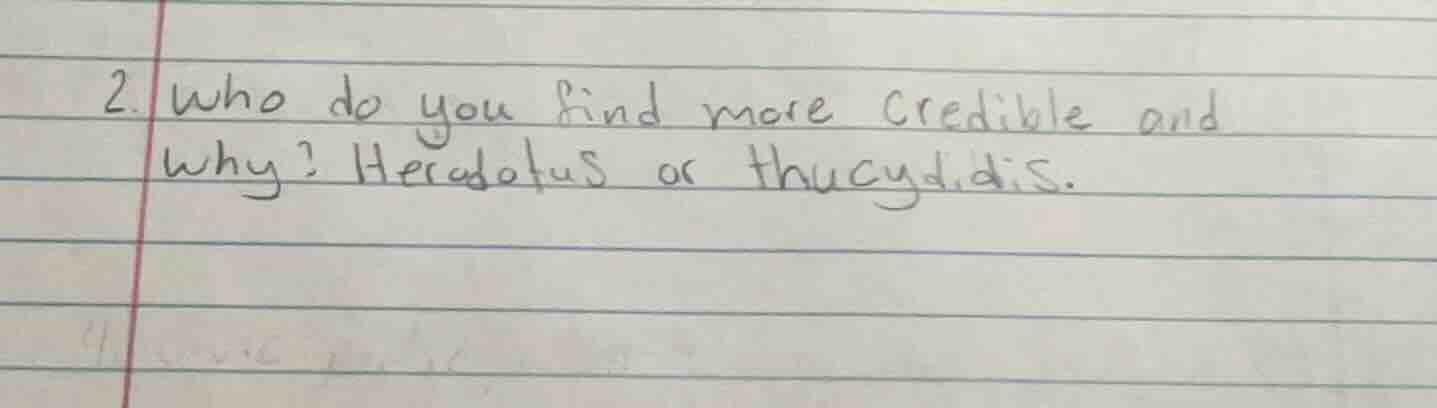 2. Who do you find more credible and
why? Herodotus or thucydidis.